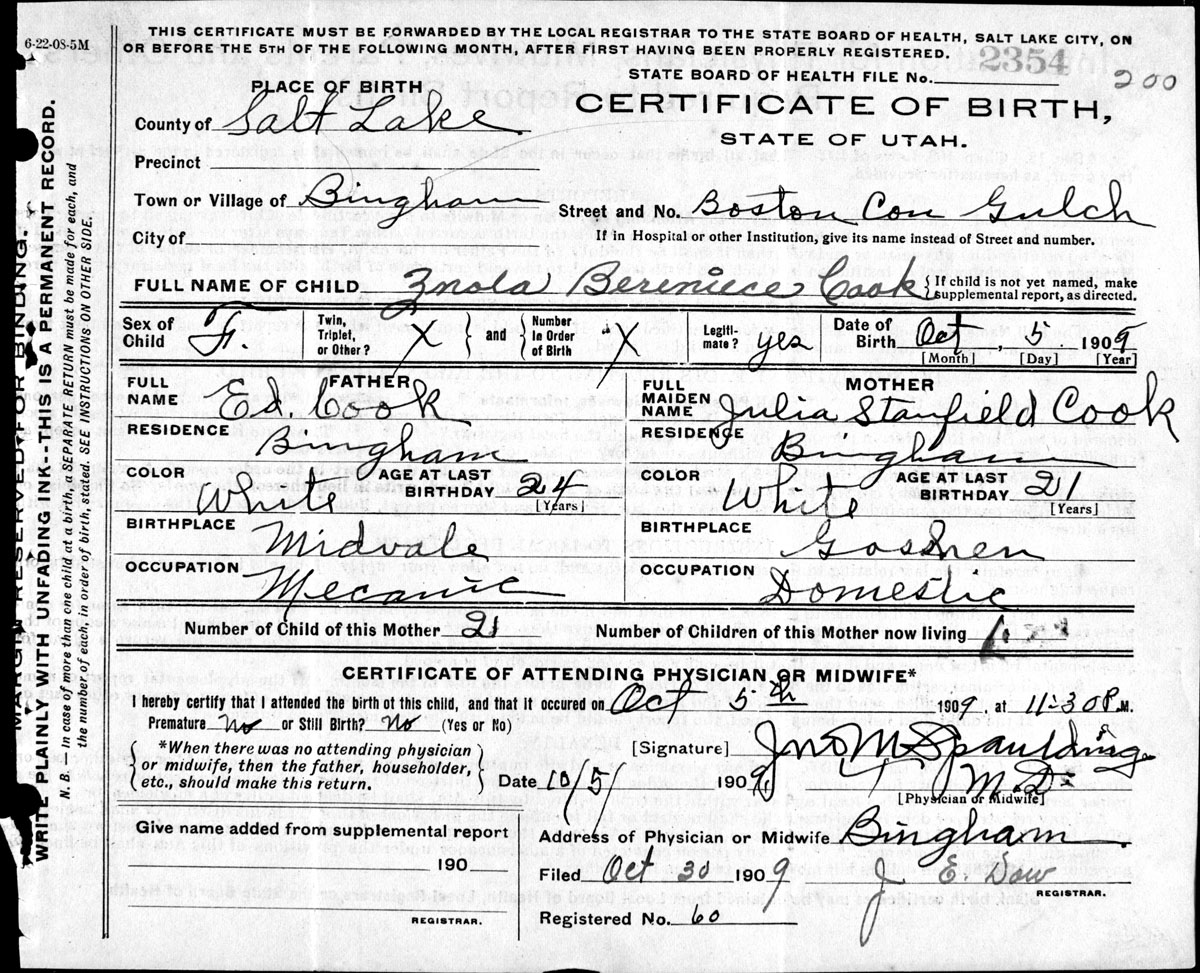 6-22-08-5M
THIS CERTIFICATE MUST BE FORWARDED BY THE LOCAL REGISTRAR TO THE STATE BOARD OF HEALTH, SALT LAKE CITY, ON
OR BEFORE THE 5TH OF THE FOLLOWING MONTH, AFTER FIRST HAVING BEEN PROPERLY REGISTERED.
STATE BOARD OF HEALTH FILE No. 2354 200
PLACE OF BIRTH
CERTIFICATE OF BIRTH,
STATE OF UTAH.
County of Salt Lake
Precinct
Town or Village of Bingham Street and No. Boston Con Gulch
City of If in Hospital or other Institution, give its name instead of Street and number.
FULL NAME OF CHILD Znola Bereniece Cook { If child is not yet named, make supplemental report, as directed.
Sex of Child F. Twin, Triplet, or Other? X } and { Number in Order of Birth X Legiti-mate? yes Date of Birth Oct, 5 1909
[Month] [Day] [Year]
FATHER MOTHER
FULL NAME Ed. Cook FULL MAIDEN NAME Julia Stanfield Cook
RESIDENCE Bingham RESIDENCE Bingham
COLOR White AGE AT LAST BIRTHDAY 24 [Years] COLOR White AGE AT LAST BIRTHDAY 21 [Years]
BIRTHPLACE Midvale BIRTHPLACE Goshen
OCCUPATION Mecanic OCCUPATION Domestic
Number of Child of this Mother 21 Number of Children of this Mother now living
CERTIFICATE OF ATTENDING PHYSICIAN OR MIDWIFE*
I hereby certify that I attended the birth of this child, and that it occured on Oct 5th 1909, at 11-30 P.M.
Premature No or Still Birth? No (Yes or No)
{ *When there was no attending physician or midwife, then the father, householder, etc., should make this return. }
[Signature] Jno M Spaulding
Date 10/5/ 1909 M.D.
[Physician or Midwife]
Give name added from supplemental report
190
REGISTRAR.
Address of Physician or Midwife Bingham.
Filed Oct 30 1909 J. E. Dow
REGISTRAR.
Registered No. 60
MARGIN RESERVED FOR BINDING.
WRITE PLAINLY WITH UNFADING INK--THIS IS A PERMANENT RECORD.
N. B.—In case of more than one child at a birth, a SEPARATE RETURN must be made for each, and
the number of each, in order of birth, stated. SEE INSTRUCTIONS ON OTHER SIDE.